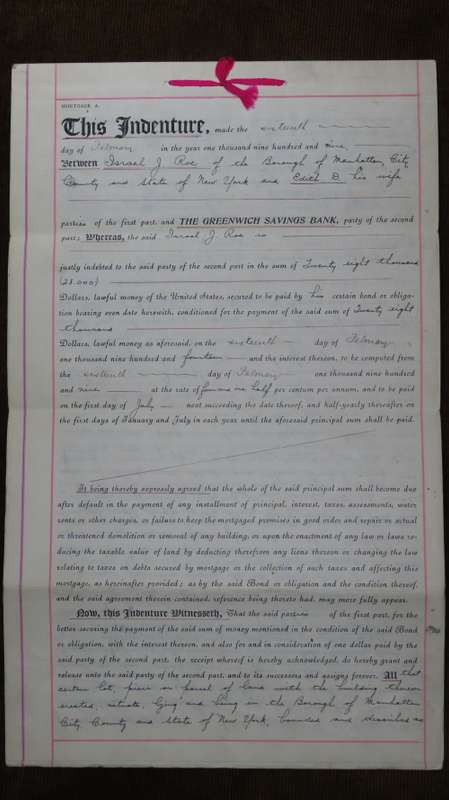 MORTGAGE, A.
This Indenture, made the sixteenth
day of February in the year one thousand nine hundred and nine,
Between Israel J. Roe of the Borough of Manhattan City,
County and State of New York and Edith D. his wife
parties of the first part, and THE GREENWICH SAVINGS BANK, party of the second
part; Whereas, the said Israel J. Roe is
justly indebted to the said party of the second part in the sum of Twenty eight thousand
(28.000)
Dollars, lawful money of the United States, secured to be paid by his certain bond or obliga-
tion bearing even date herewith, conditioned for the payment of the said sum of Twenty eight
thousand
Dollars, lawful money as aforesaid, on the sixteenth day of February
one thousand nine hundred and fourteen and the interest thereon, to be computed from
the sixteenth day of February one thousand nine hundred
and nine at the rate of four one half per centum per annum, and to be paid
on the first day of July next succeeding the date thereof, and half-yearly thereafter on
the first days of January and July in each year until the aforesaid principal sum shall be paid.
It being thereby expressly agreed that the whole of the said principal sum shall become due
after default in the payment of any installment of principal, interest, taxes, assessments, water
rents or other charges, or failure to keep the mortgaged premises in good order and repair or actual
or threatened demolition or removal of any building; or upon the enactment of any law or laws re-
ducing the taxable value of land by deducting therefrom any liens thereon or changing the law
relating to taxes on debts secured by mortgage or the collection of such taxes and affecting this
mortgage, as hereinafter provided; as by the said Bond or obligation and the condition thereof,
and the said agreement therein contained, reference being thereto had, may more fully appear.
Now, this Indenture Witnesseth, That the said parties of the first part, for the
better securing the payment of the said sum of money mentioned in the condition of the said Bond
or obligation, with the interest thereon, and also for and in consideration of one dollar paid by the
said party of the second part, the receipt whereof is hereby acknowledged, do hereby grant and
release unto the said party of the second part, and to its successors and assigns forever. All that
certain lot, piece or parcel of land with the building thereon
erected, situate, lying and being in the Borough of Manhattan
City, County and State of New York, bounded and described as